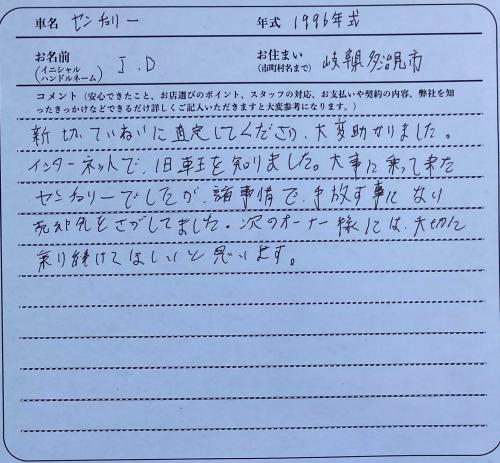 車名 センチュリー 年式 1996年式
お名前 (イニシャル ハンドルネーム) J.D お住まい (市町村名まで) 岐阜県多治見市
コメント（安心できたこと、お店選びのポイント、スタッフの対応、お支払いや契約の内容、弊社を知
ったきっかけなどできるだけ詳しくご記入いただきますと大変参考になります。）
親切ていねいに査定してくださり、大変助かりました。
インターネットで、旧車王を知りました。大事に乗って来た
センチュリーでしたが、諸事情で、手放す事になり
売却先をさがしてました。次のオーナー様には、大切に
乗り続けてほしいと思います。